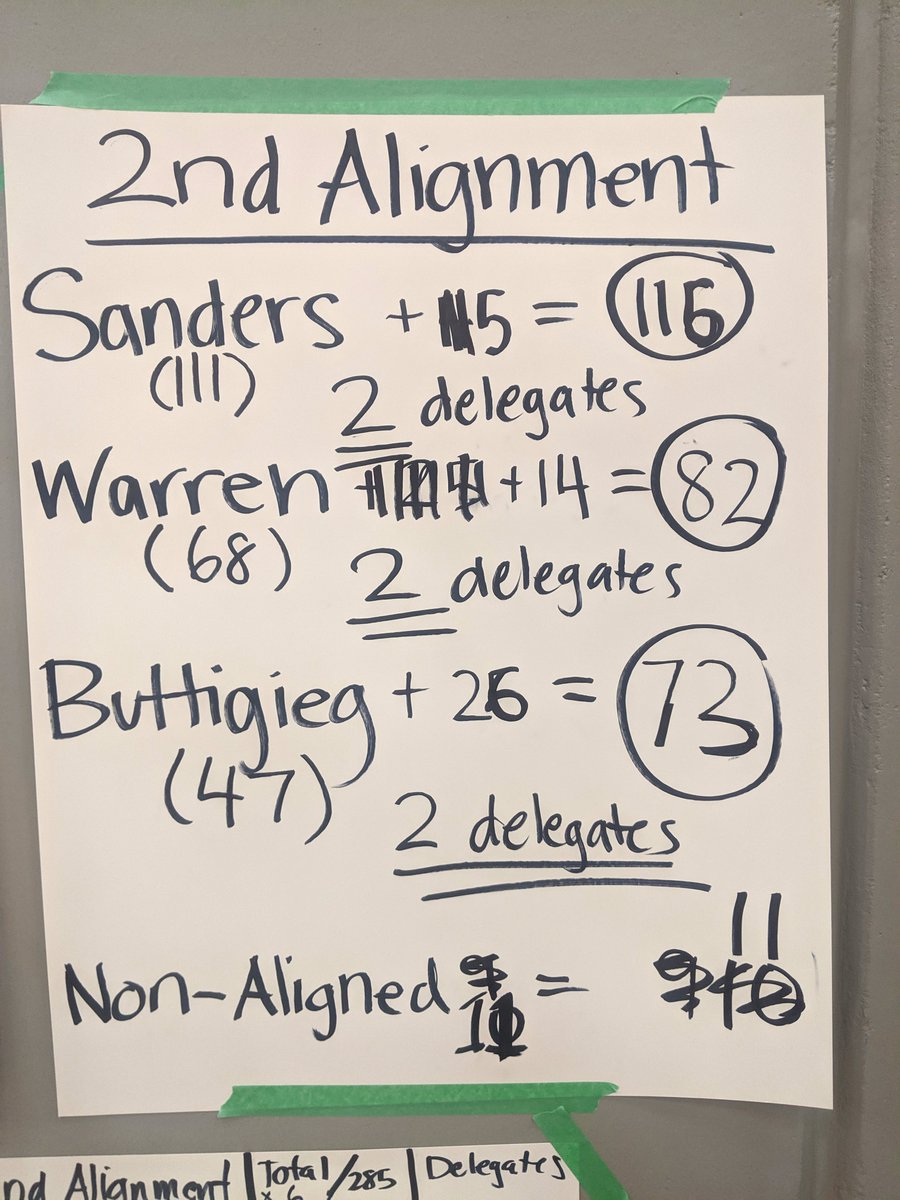 2nd Alignment
Sanders + 5 = 116
(111)
2 delegates
Warren +14 = 82
(68)
2 delegates
Buttigieg + 26 = 73
(47)
2 delegates
11
Non-Aligned 11 =
nd Alignment | Total /285 | Delegates
× 6